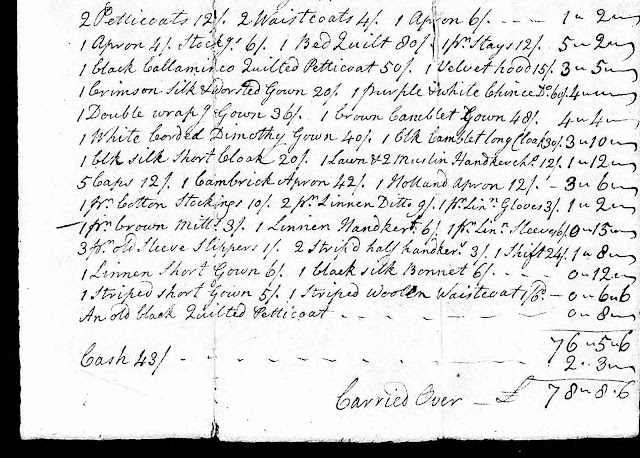 2 Petticoats 12/. 2 Waistcoats 4/. 1 Apron 6/. - - - 1 " 2 "
1 Apron 4/. Stockgs. 6/. 1 Bed Quilt 80/. 1 pr. Stays 12/. 5 " 2 "
1 black Callaminco Quilted Petticoat 50/. 1 Velvet hood 15/. 3 " 5 "
1 Crimson Silk & Worsted Gown 20/. 1 purple & white Chince Do. 60/. 4 "
1 Double wrapg. Gown 36/. 1 brown Camblet Gown 48/. 4 " 4 "
1 White Corded Dimothy Gown 40/. 1 Blk Camblet long Cloak 30/. 3 " 10 "
1 Blk silk Short Cloak 20/. 1 Lawn & 2 Muslin Handkerchs. 12/. 1 " 12 "
5 Caps 12/. 1 Cambrick Apron 42/. 1 Holland Apron 12/. - 3 " 6 "
1 pr. Cotton Stockings 10/. 2 pr. Linnen Ditto 9/. 1 pr. Linn. Gloves 3/. 1 " 2 "
1 pr. brown Mitts. 3/. 1 Linnen Handkerf. 6/. 1 pr. Linn. Sleeves 6/. 0 " 15 "
3 pr. old Sleeve Slippers 1/. 2 Strip'd half handkers. 3/. 1 Shift 24/. 1 " 8 "
1 Linnen Short Gown 6/. 1 black silk Bonnet 6/. - - 0 " 12 "
1 Striped short Gown 5/. 1 Striped Woolen Waistcoat 1/6d. - 0 " 6 " 6
An old black Quilted Petticoat - - - - 0 " 8 "
76 " 5 " 6
Cash 43/. - - - - - - 2 " 3 "
Carried Over - £ 78 " 8 " 6